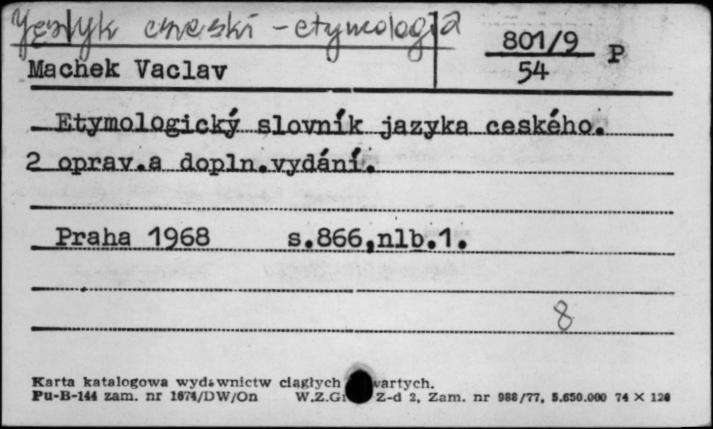 Język czeski - etymologia
801/9 P
54
Machek Vaclav
Etymologický slovník jazyka ceského.
2 oprav.a dopln.vydání.
Praha 1968 s.866,nlb.1.
8
Karta katalogowa wydawnictw ciągłych wartych.
Pu-B-144 zam. nr 1674/DW/On W.Z.Gr Z-d 2, Zam. nr 988/77, 5.650.000 74 × 120